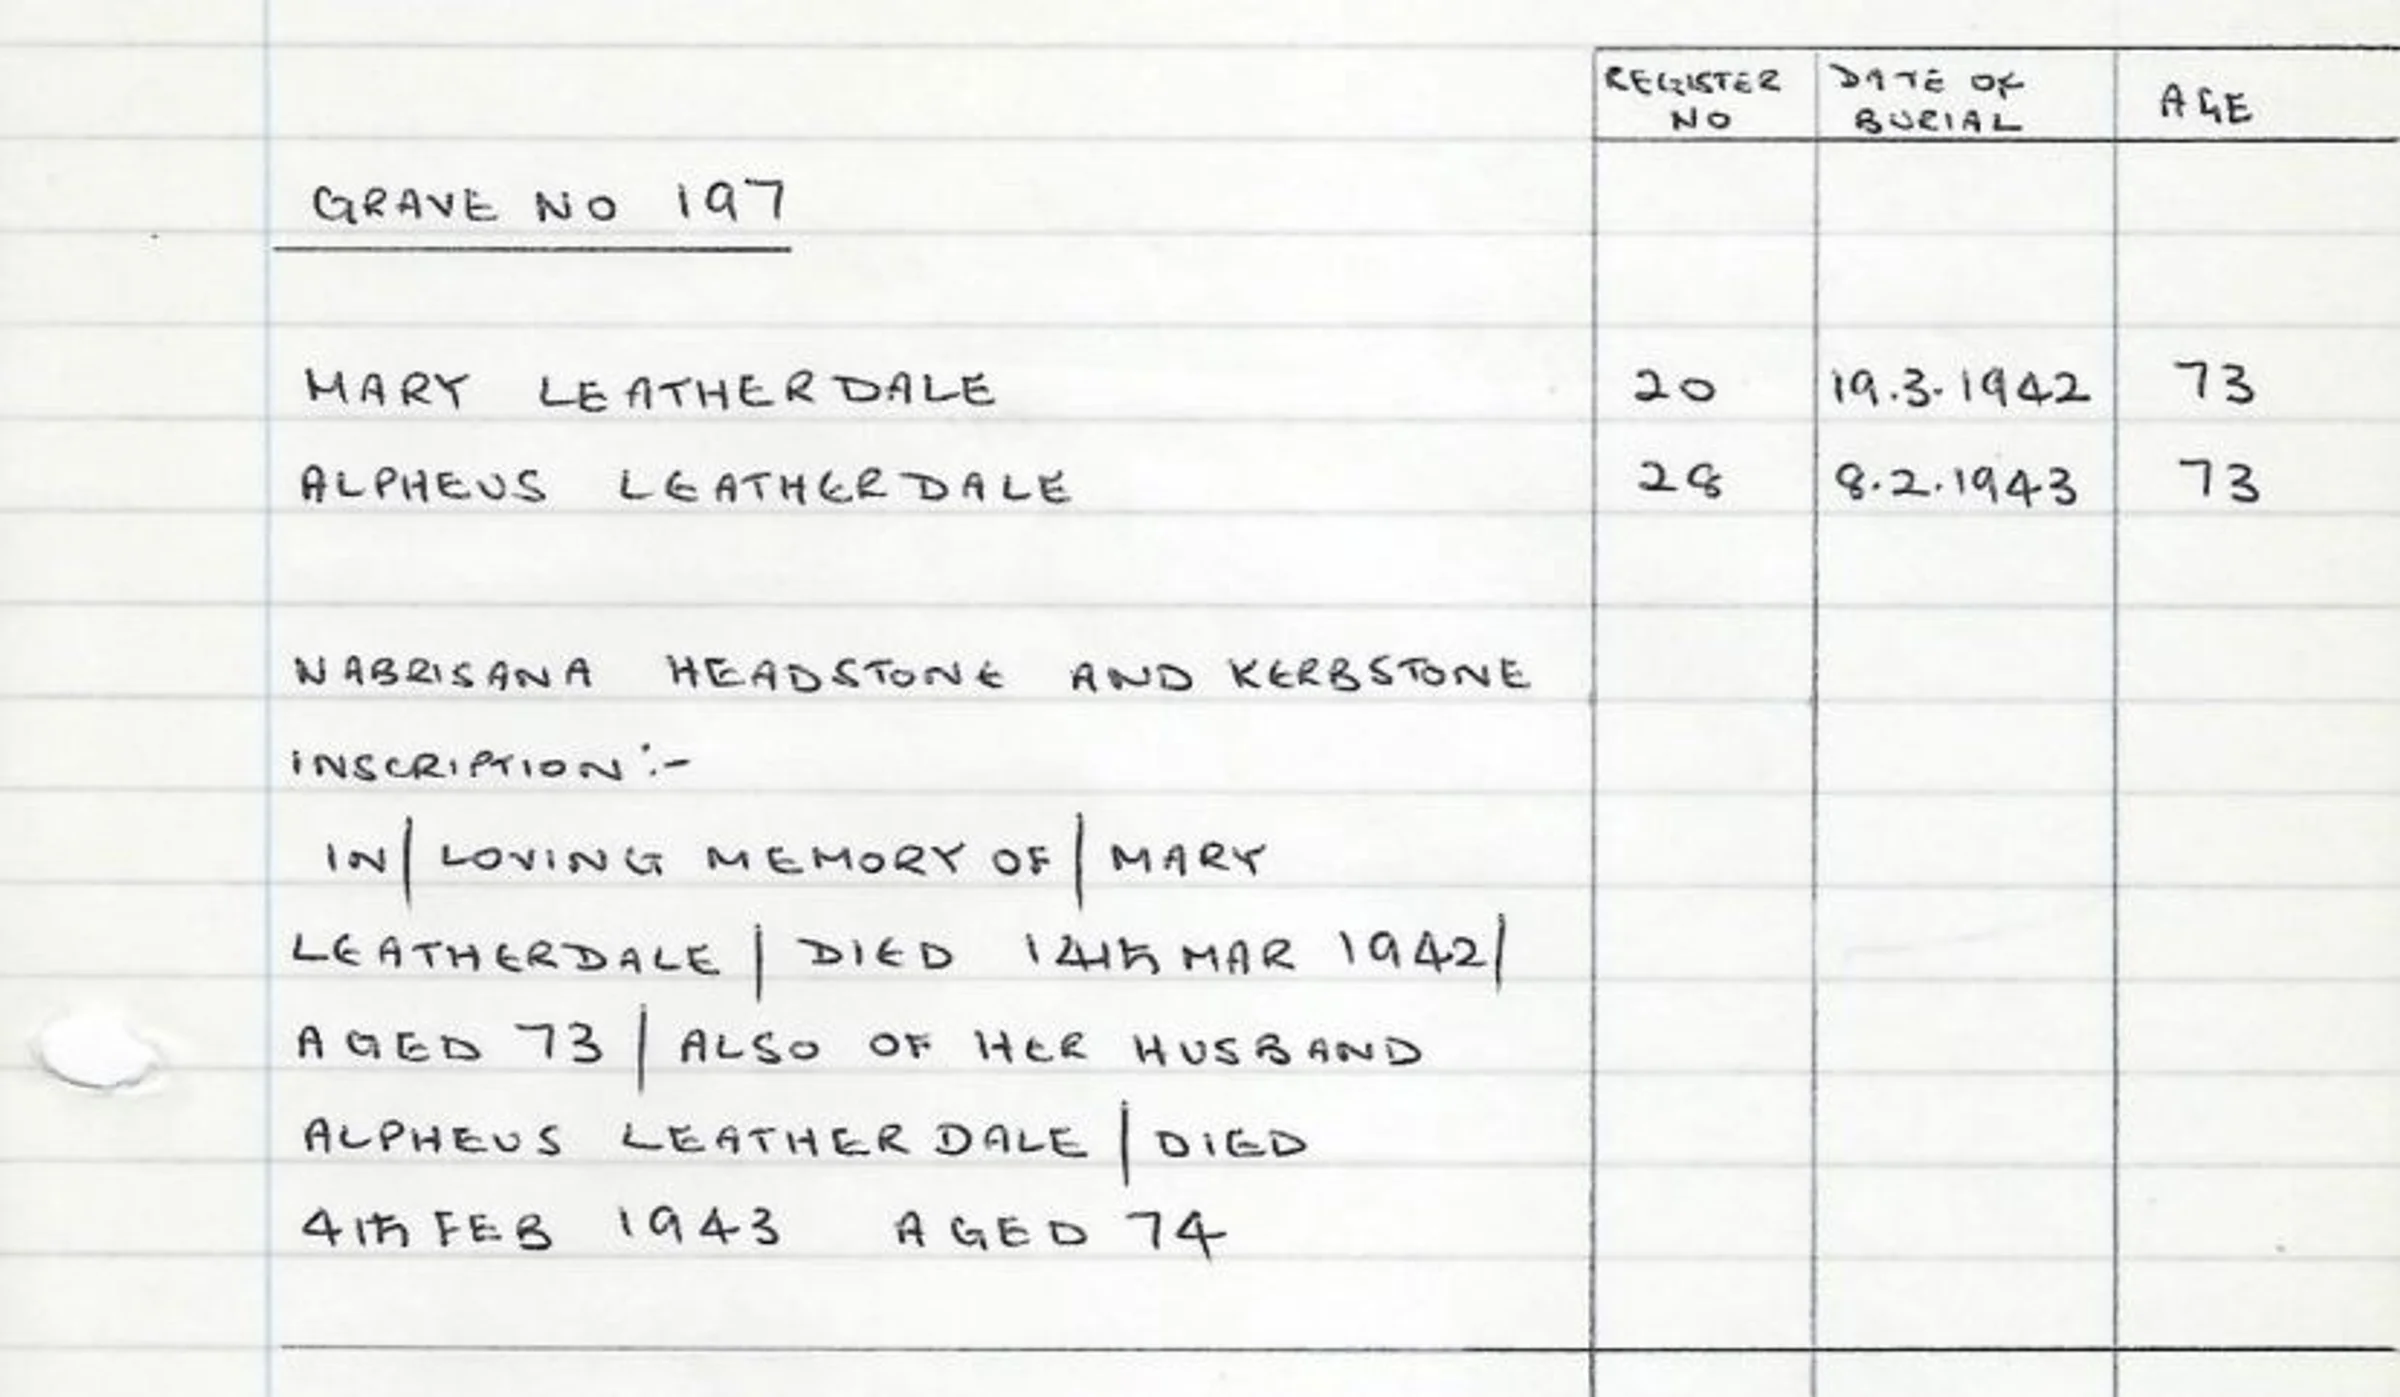 REGISTER NO DATE OF BURIAL AGE
GRAVE NO 197
MARY LEATHERDALE 20 19.3.1942 73
ALPHEUS LEATHERDALE 28 8.2.1943 73
NABRISANA HEADSTONE AND KERBSTONE
INSCRIPTION:-
IN| LOVING MEMORY OF| MARY
LEATHERDALE | DIED 14th MAR 1942|
AGED 73 | ALSO OF HER HUSBAND
ALPHEUS LEATHERDALE | DIED
4th FEB 1943 AGED 74